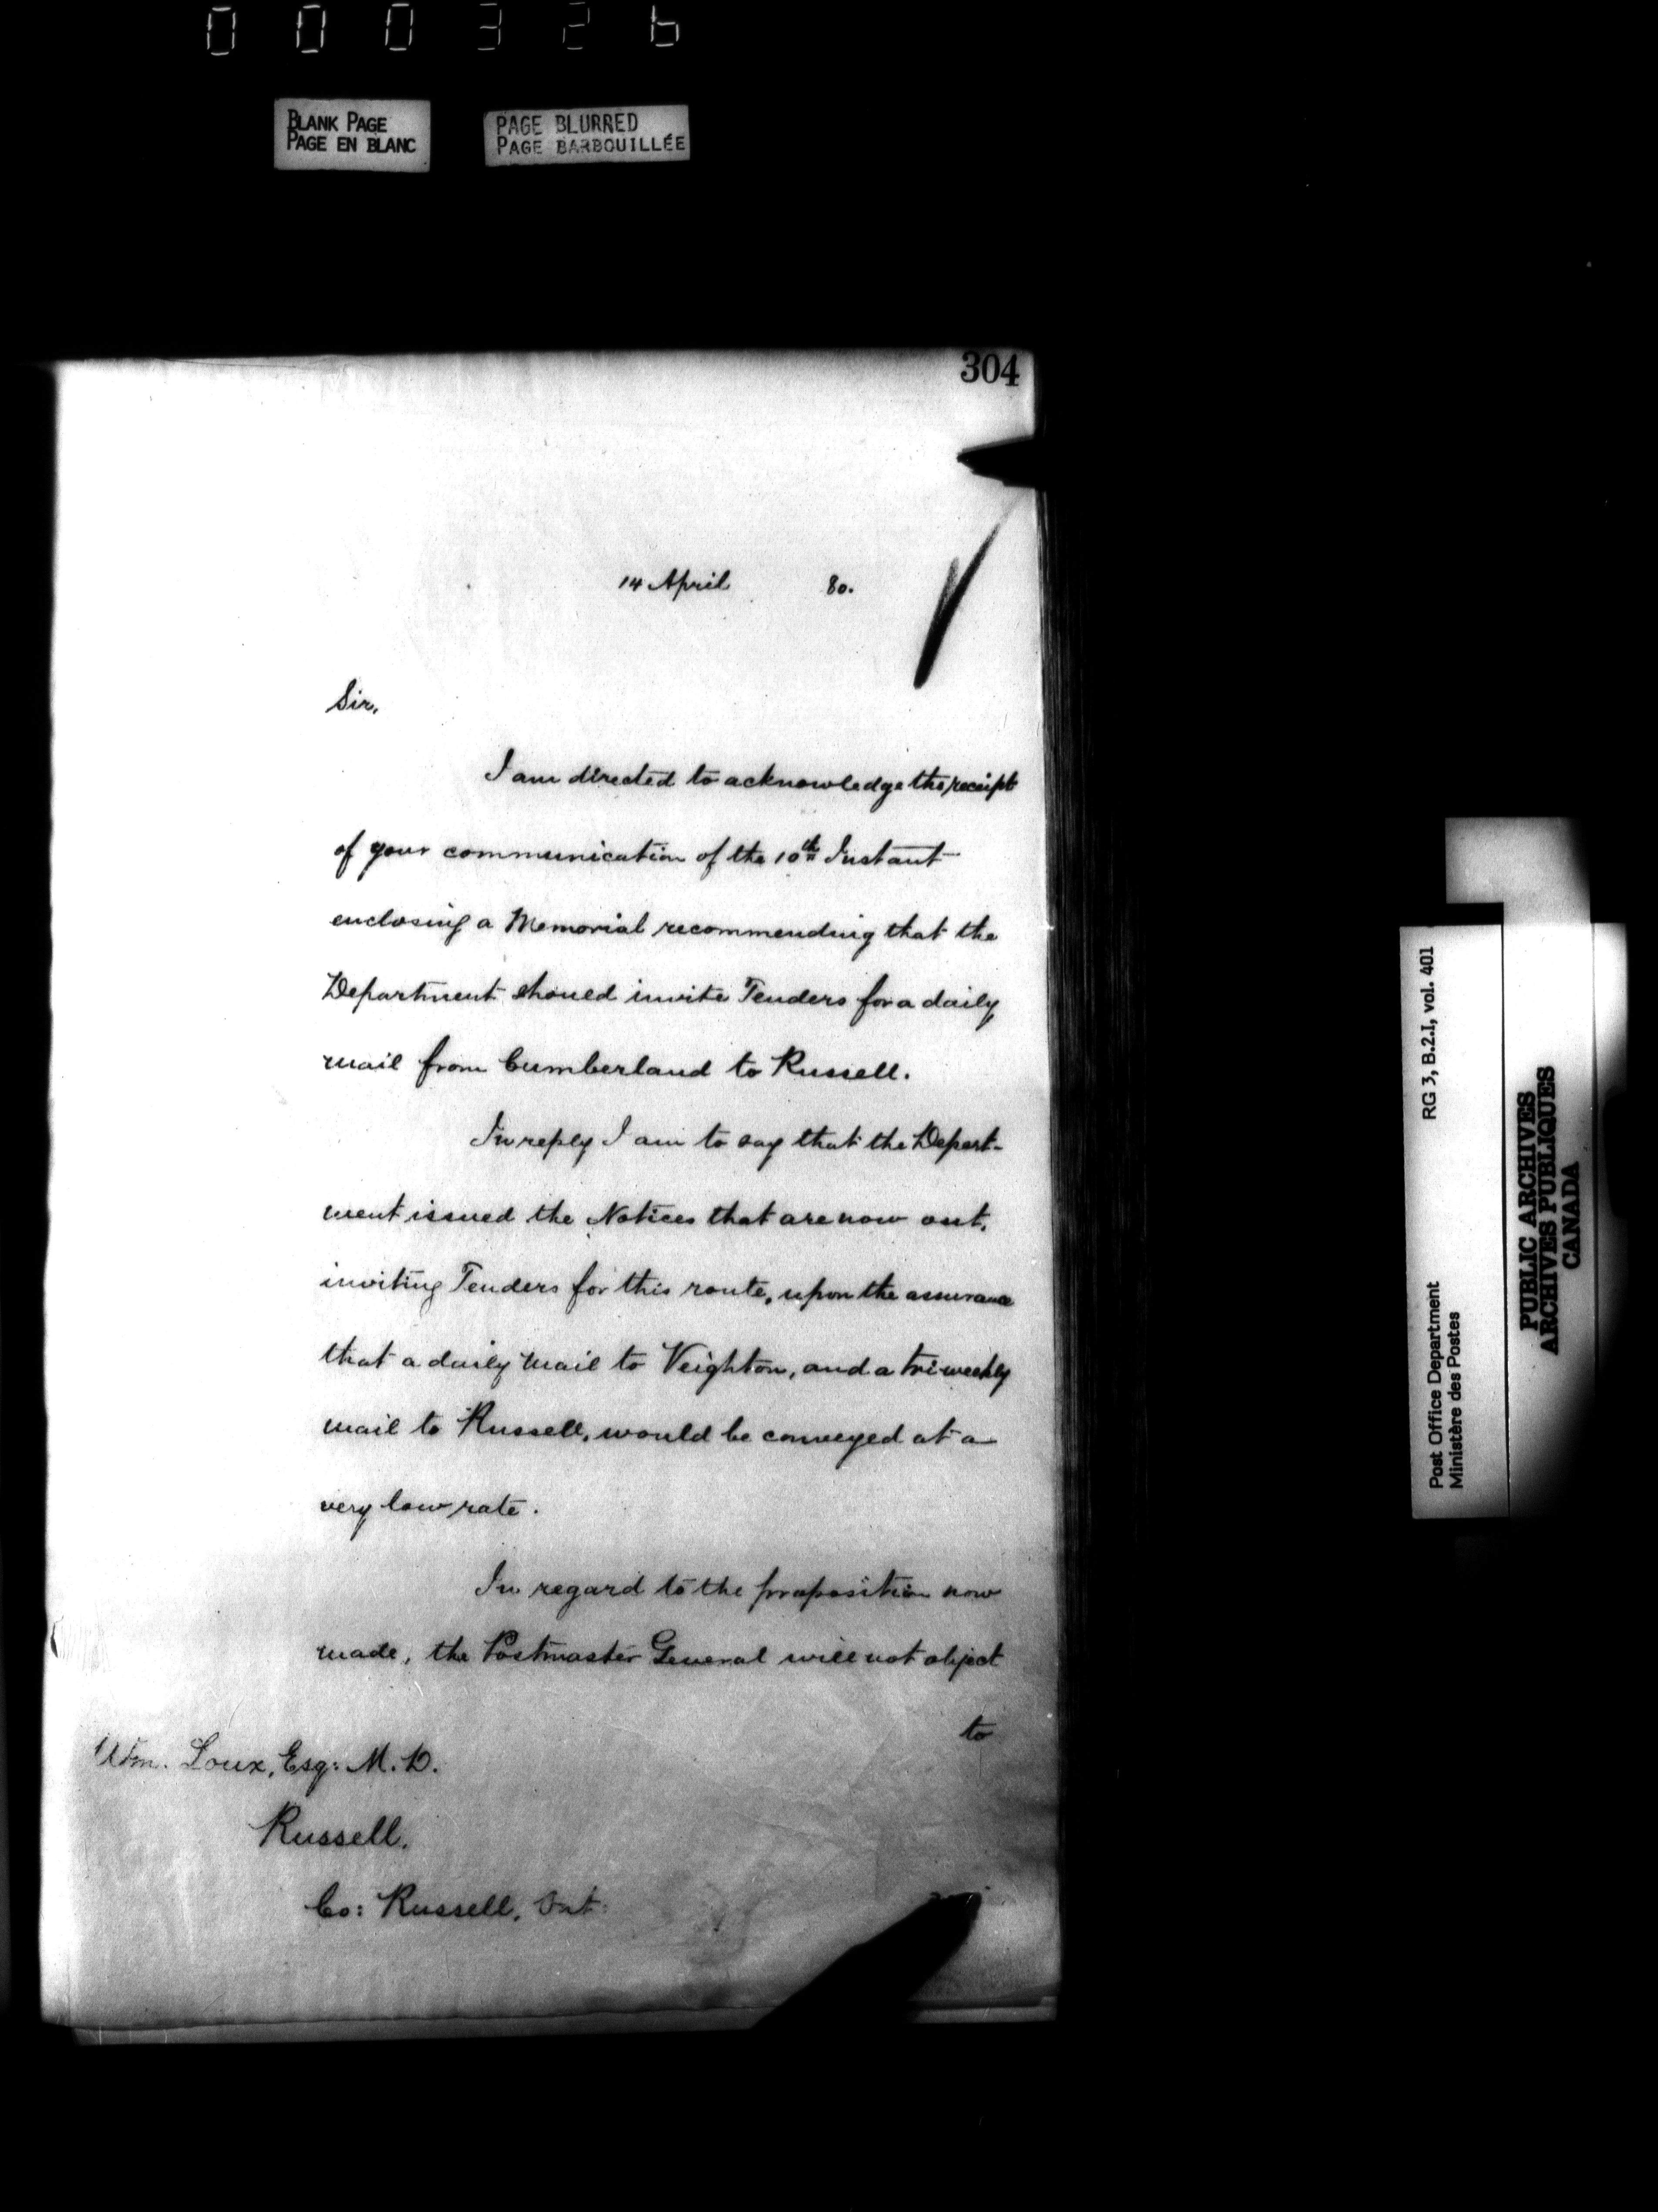 000326
BLANK PAGE
PAGE EN BLANC
PAGE BLURRED
PAGE BARBOUILLÉE
304
14 April 80.
Sir,
I am directed to acknowledge the receipt
of your communication of the 10th Instant
enclosing a Memorial recommending that the
Department should invite Tenders for a daily
mail from Cumberland to Russell.
In reply I am to say that the Depart-
ment issued the Notices that are now out,
inviting Tenders for this route, upon the assurance
that a daily mail to Veighton, and a tri-weekly
mail to Russell, would be conveyed at a
very low rate.
In regard to the proposition now
made, the Postmaster General will not object
to
Wm. Loux, Esq: M.D.
Russell.
Co: Russell, Ont:
Post Office Department RG 3, B.2.I, vol. 401
Ministère des Postes
PUBLIC ARCHIVES
ARCHIVES PUBLIQUES
CANADA